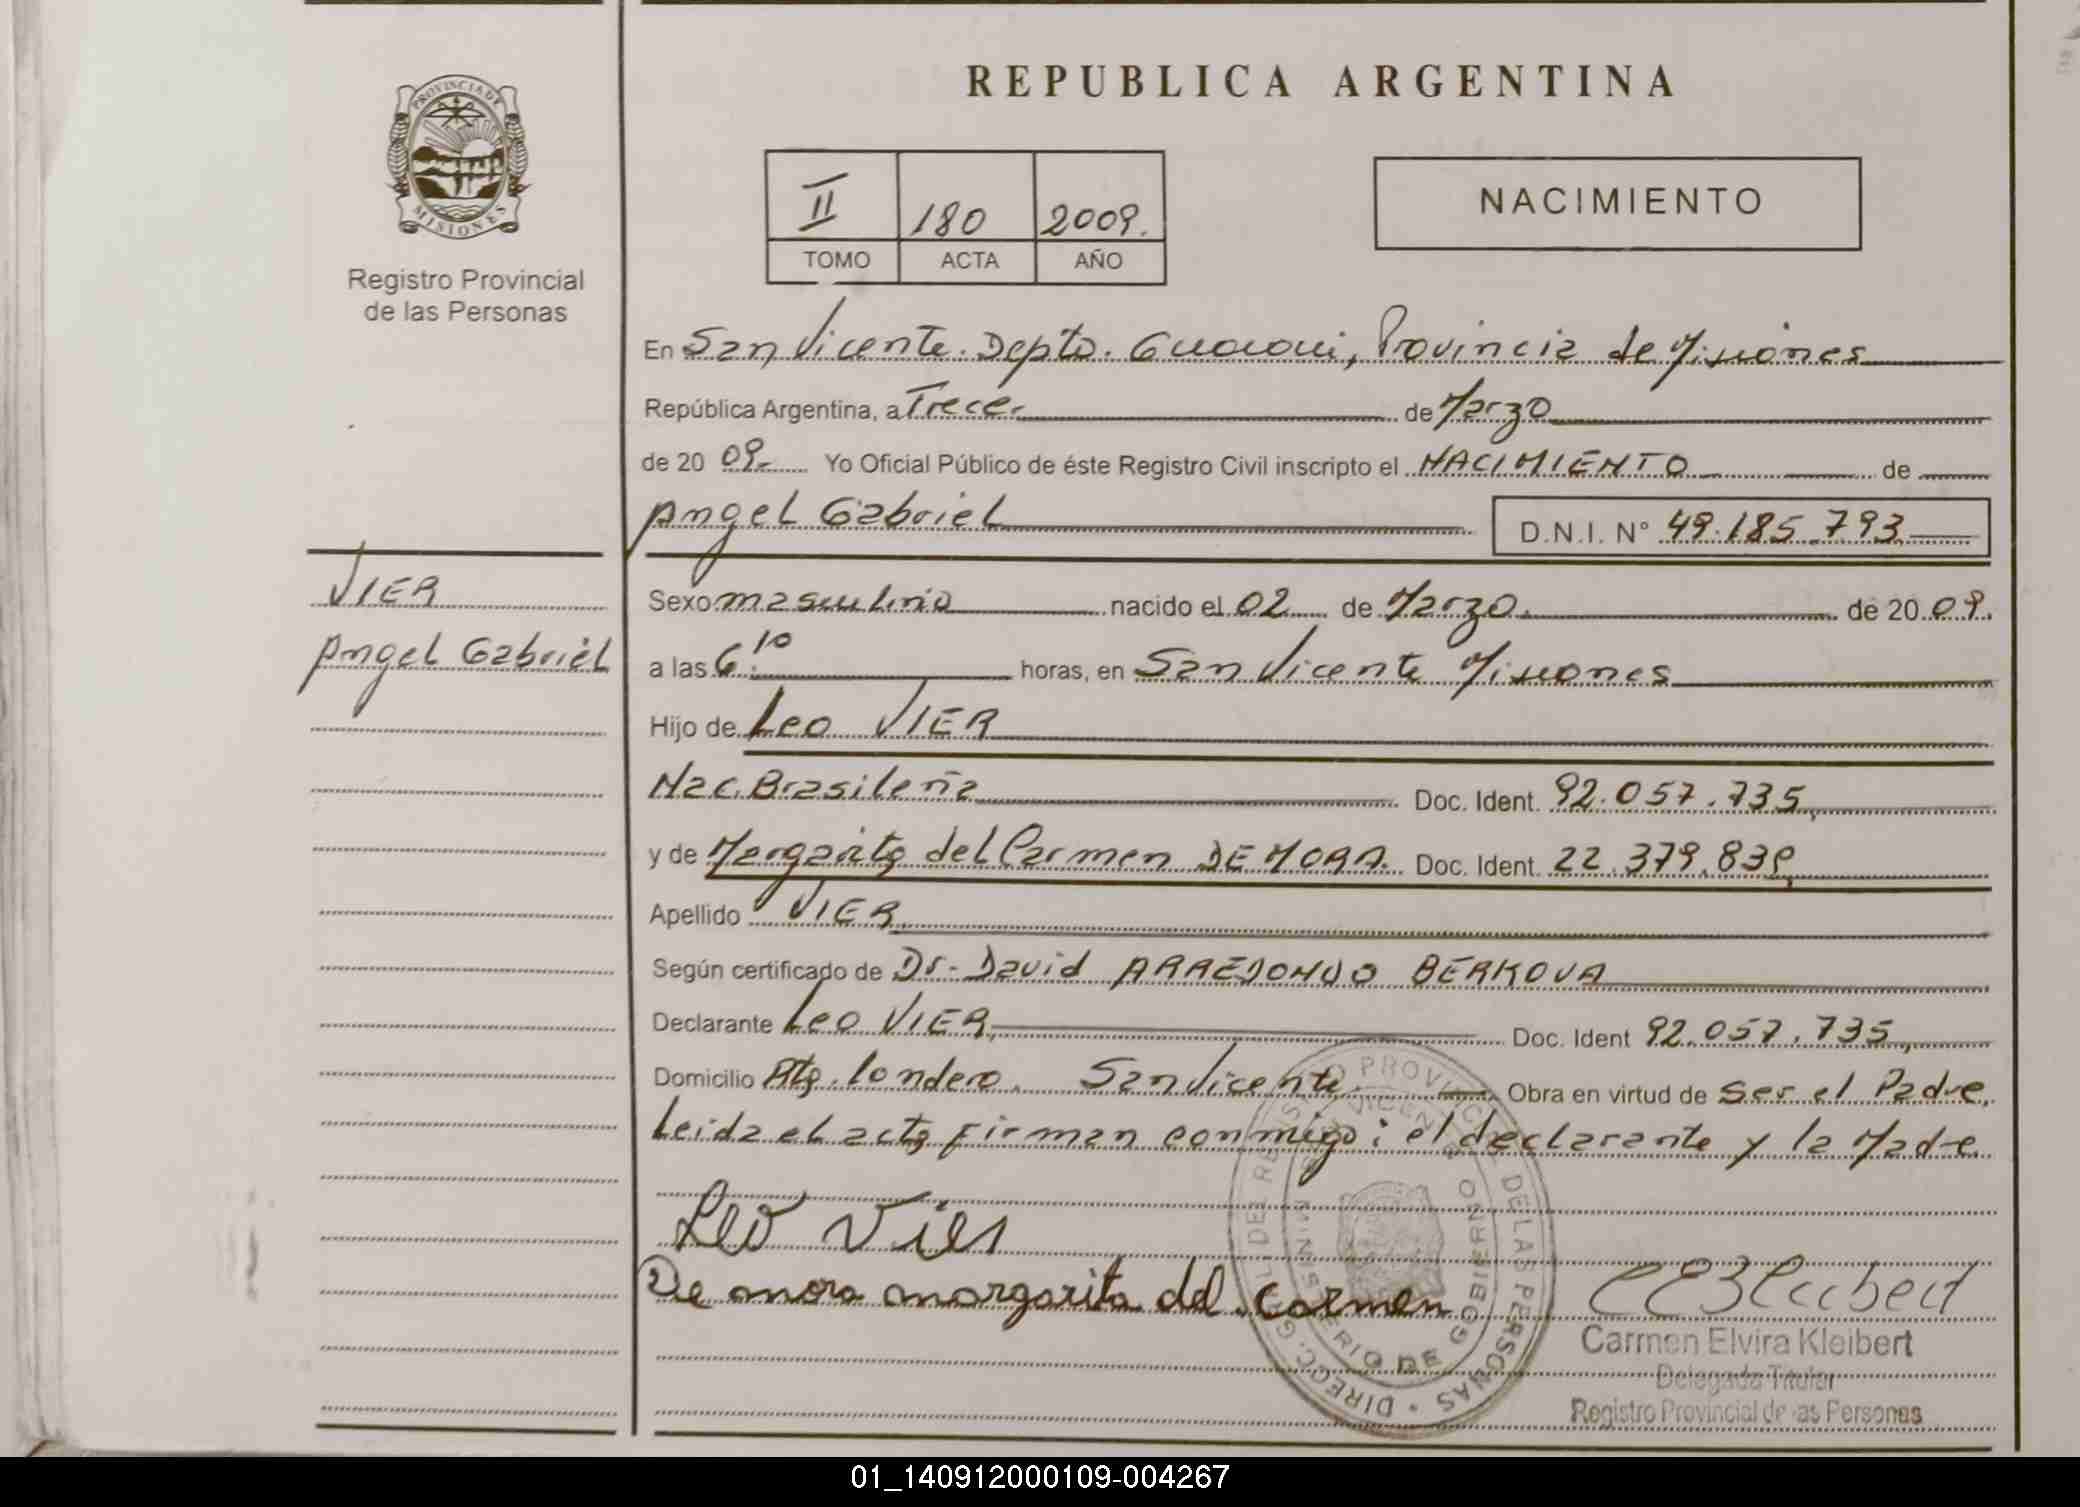 PROVINCIA DE
MISIONES
Registro Provincial
de las Personas
REPUBLICA ARGENTINA
II 180 2009.
TOMO ACTA AÑO
NACIMIENTO
En San Vicente. Depto. Guarani, Provincia de Misiones
República Argentina, a Trece de Marzo
de 20 09 Yo Oficial Público de éste Registro Civil inscripto el NACIMIENTO de
Angel Gabriel D.N.I. N° 49.185.793
VIER
Angel Gabriel
Sexo masculino nacido el 02 de Marzo. de 20 09.
a las 6:10 horas, en San Vicente Misiones
Hijo de Leo VIER
Nac. Brasileña Doc. Ident. 92.057.735,
y de Margarita del Carmen DE MORA. Doc. Ident. 22.379.839,
Apellido VIER,
Según certificado de Dr. David ARREDONDO BERKOVA
Declarante Leo VIER, Doc. Ident 92.057.735,
Domicilio Pje. Londero. San Vicente. Obra en virtud de ser el Padre,
Leida el acta firman conmigo: el declarante y la Madre.
Leo Vier
De mora margarita del carmen
DIRECC. GRAL. DE REGISTRO PROVINCIAL DE LAS PERSONAS
SAN VICENTE
MINISTERIO DE GOBIERNO
Carmen Elvira Kleibert
Delegada Titular
Registro Provincial de las Personas
01_140912000109-004267